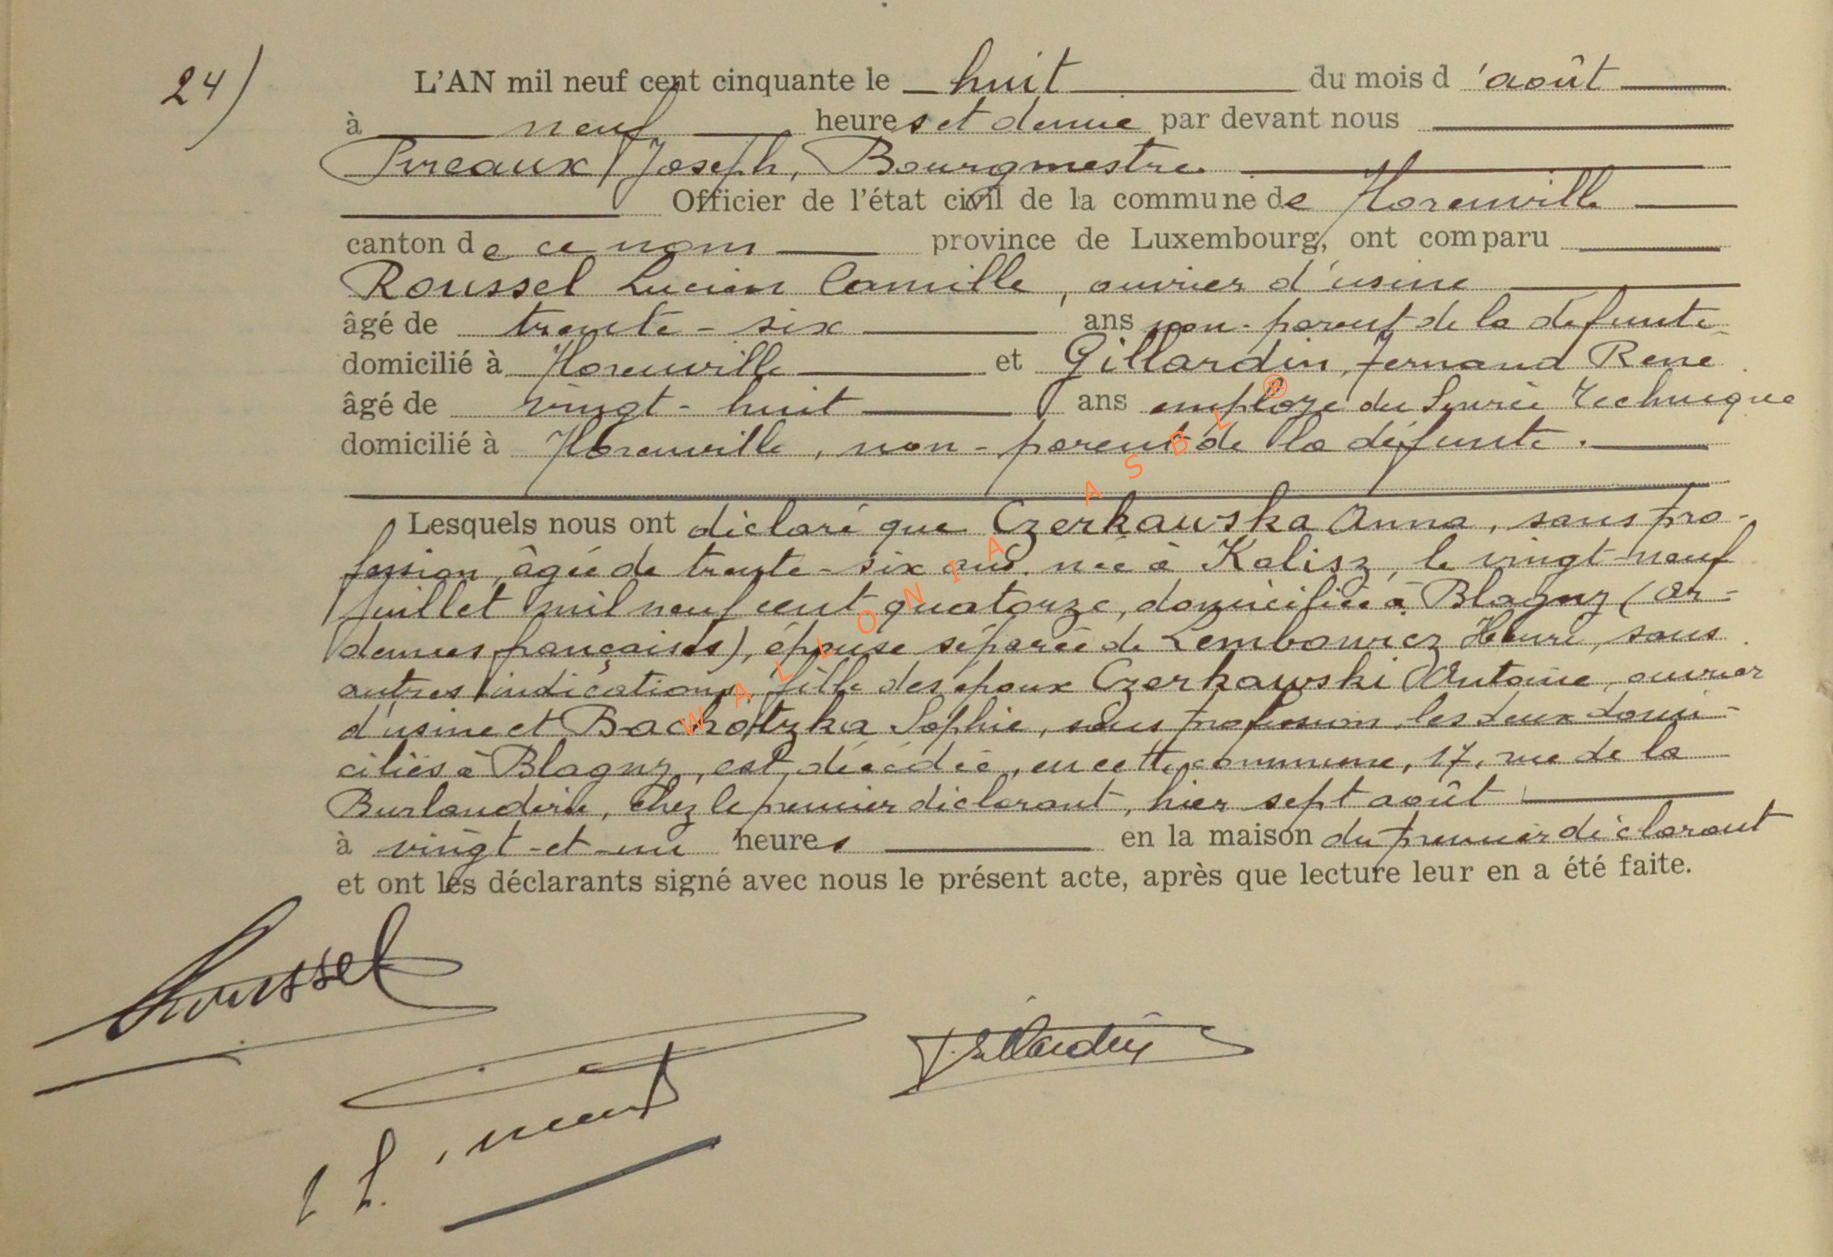 24)
L'AN mil neuf cent cinquante le huit du mois d 'août
à neuf heures et demie par devant nous
Pireaux Joseph, Bourgmestre
Officier de l'état civil de la commune de Florenville
canton de ce nom province de Luxembourg, ont comparu
Roussel Lucien Camille, ouvrier d'usine
âgé de trente-six ans non-parent de la défunte
domicilié à Florenville et Gillardin, Fernand René
âgé de vingt-huit ans employé du Service Technique
domicilié à Florenville, non-parent de la défunte.
Lesquels nous ont déclaré que Czerkawska Anna, sans pro-
fession, âgée de trente-six ans, née à Kalisz, le vingt-neuf
juillet mil neuf cent quatorze, domiciliée à Blagny (Ar-
dennes françaises), épouse séparée de Lembowicz Henri, sans
autres indications, fille des époux Czerkawski Antoine, ouvrier
d'usine et Sophie, sans profession, les deux domi-
ciliés à Blagny, est décédée, en cette commune, 17, rue de la
chez le premier déclarant, hier sept août
à vingt-et-un heures en la maison du premier déclarant
et ont les déclarants signé avec nous le présent acte, après que lecture leur en a été faite.
WALLONIA ASBL ®
Roussel
Gillardin